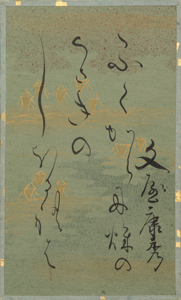 文屋康秀
ふくからに秋の
くさきの
しほるれは